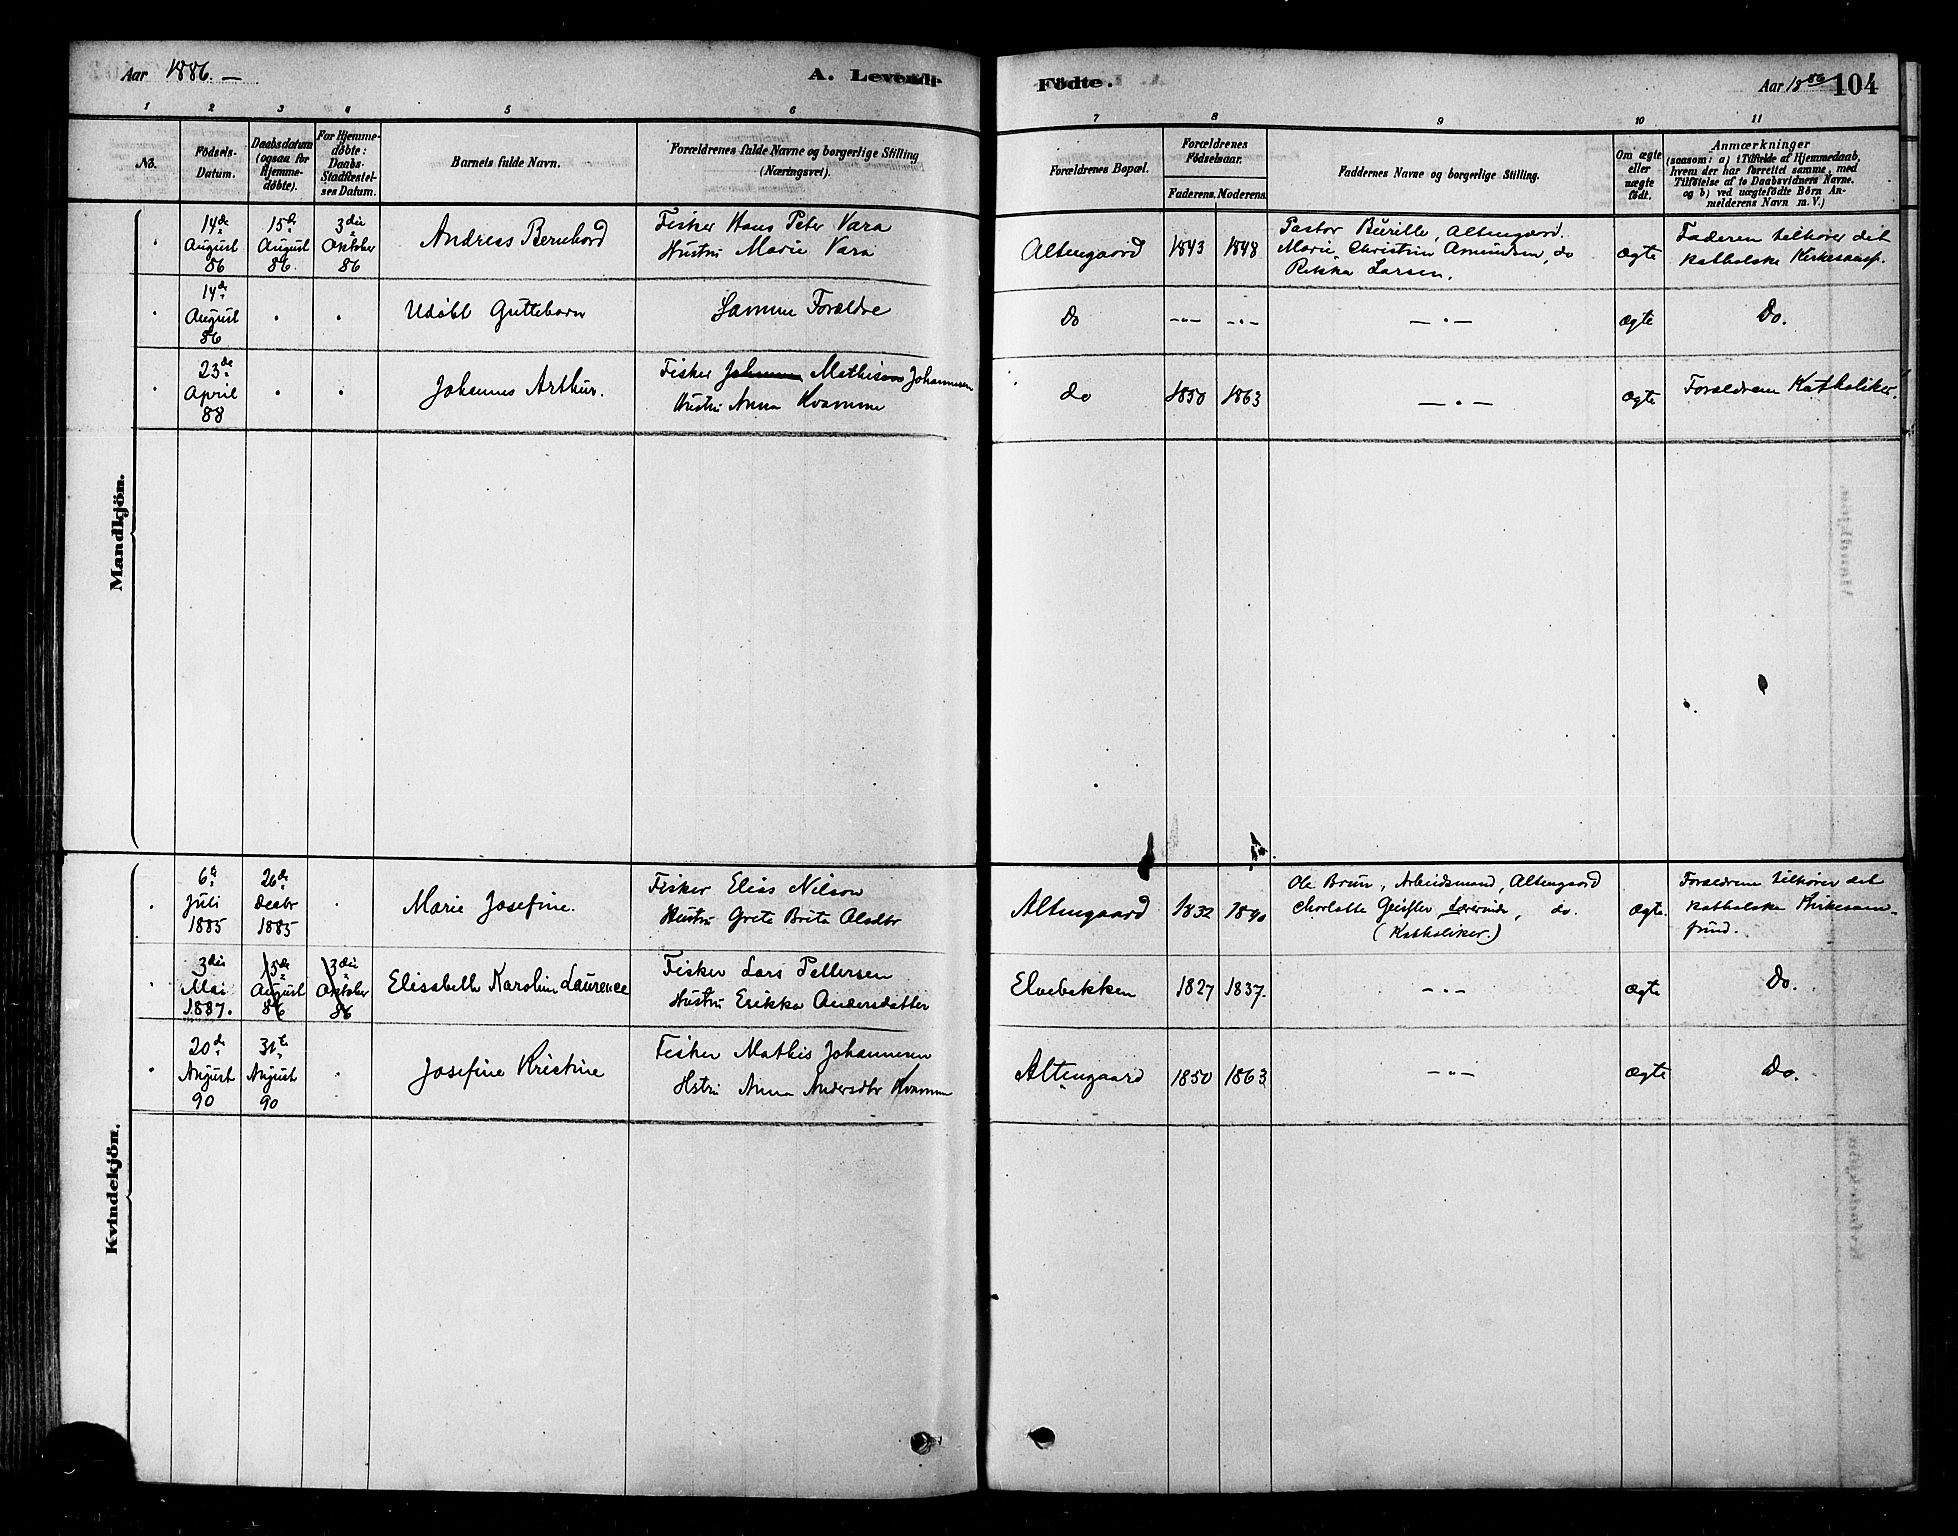 Aar 1886. —
A. Levende
Födte.
Aar 1886
104
1 2 3 4 5 6 7 8 9 10 11
No.
Födsels-
Datum.
Daabsdatum
(ogsaa for
Hjemme-
døbte).
For Hjemme-
døbte:
Daabs-
Stadfæstel-
ses Datum.
Barnets fulde Navn.
Forældrenes fulde Navne og borgerlige Stilling
(Næringsvei).
Forældrenes Bopæl.
Forældrenes
Födselsaar.
Faderens. Moderens.
Faddernes Navne og borgerlige Stilling.
Om ægte
eller
uægte
födt.
Anmærkninger
(saasom: a) i Tilfælde af Hjemmedaab,
hvem der har forrettet samme, med
Tilföielse af to Daabsvidners Navne.
og b) ved uægtefödte Börn An-
melderens Navn m. V.)
Mandkjön.
14de August 86
15de August 86.
3die Oktober 86
Andreas Bernhard
Fisker Hans Peter Vara
Hustru Marie Vara
Altengaard
1843
1848
Pastor Burille, Altengaard.
Marie Christin Amundsen, do
Rikka Larsen.
ægte
Faderen tilhører det
katholske Kirkesamf.
14de August 86
Udøbt Guttebarn
Samme Forældre
do
—"—
—"—
—"—
ægte
Do.
23de April 88
Johannes Arthur.
Fisker Mathisen Johannesen
Hustru Anna Kvamme
do
1850
1863
—"—
ægte
Forældrene Katholiker.
Kvindekjön.
6te Juli 1885
26de Decbr 1885
Marie Josefine.
Fisker Elias Nilsen
Hustru Grete Brita Olsdtr
Altengaard
1832
1840
Ole Brun, Arbeidsmand, Altengaard
Charlotte Geisfler Lærerinde, do.
(Katholiker.)
ægte.
Forældrene tilhører det
katholske Kirkesam-
fund.
3die Mai 1887.
15de August 86
3die Oktober 86
Elisabeth Karolin Laurence
Fisker Lars Pettersen
Hustru Erikka Andersdatter
Elvebakken
1827
1837.
—"—
ægte
Do.
20de August 90
31te August 90
Josefine Kristine
Fisker Mathis Johannesen
Hstru Anna Andersdtr Kvamme
Altengaard
1850
1863
—"—
ægte
Do.